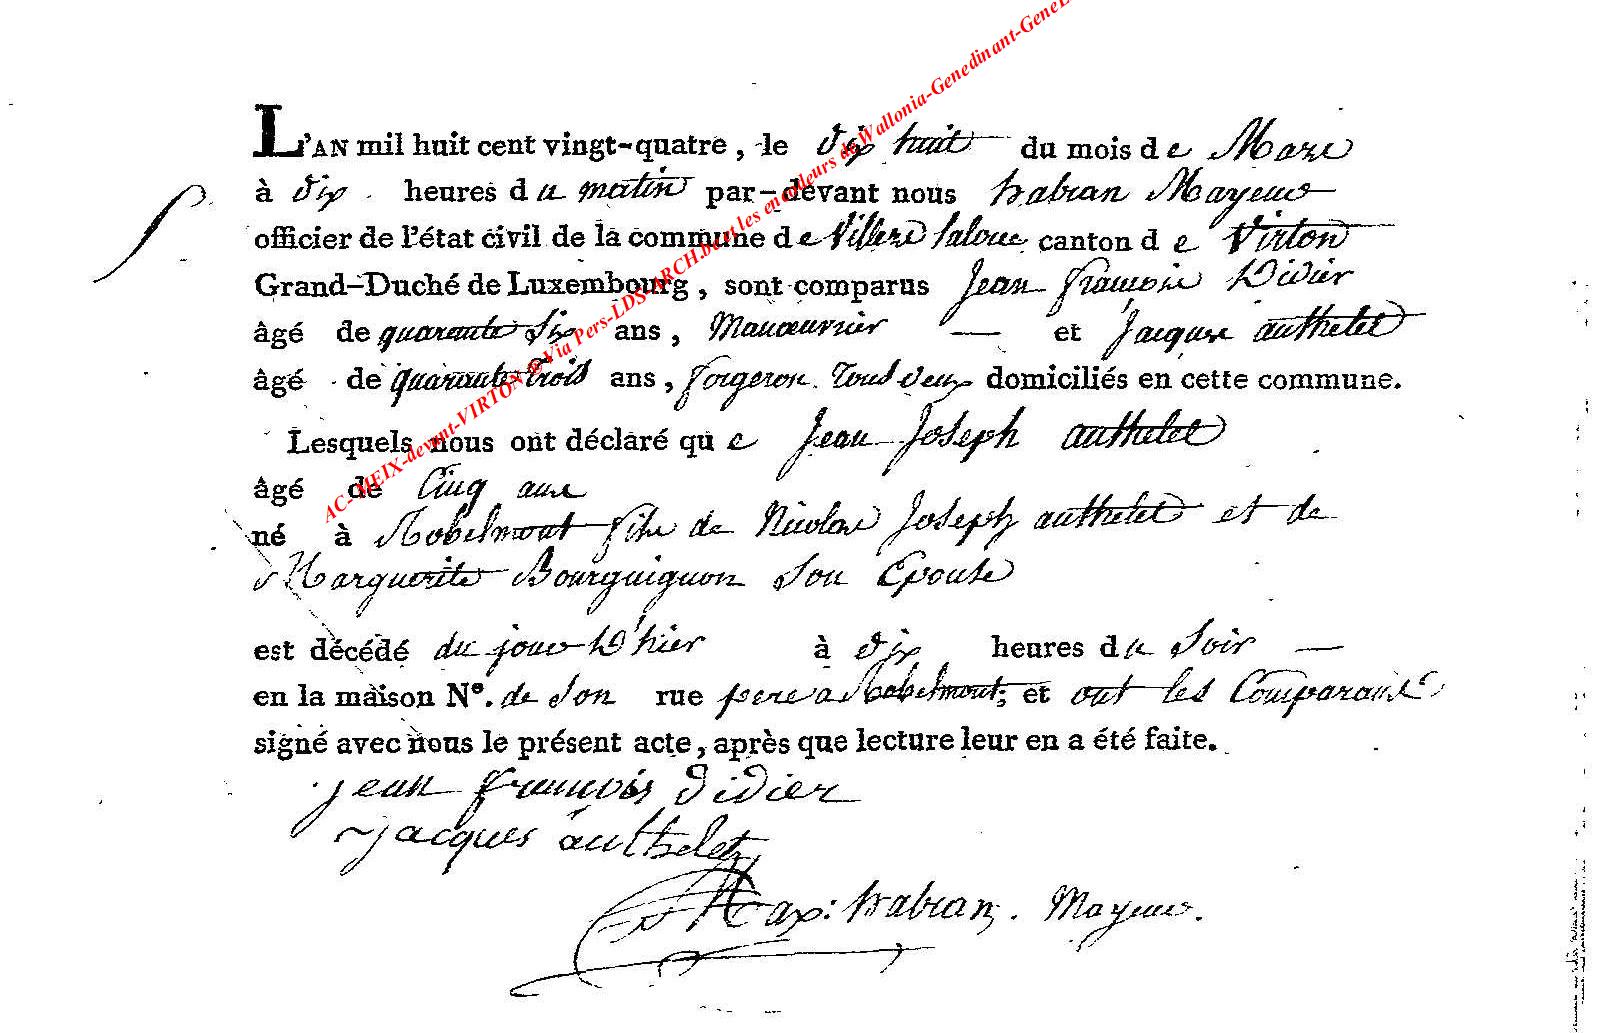 L'AN mil huit cent vingt-quatre, le dix huit du mois de Mars
à dix heures du matin par-devant nous habran Mayeur
officier de l'état civil de la commune de Villers laloue canton de Virton
Grand-Duché de Luxembourg, sont comparus Jean françois Didier
âgé de quarante Six ans, Manoeuvrier — et Jacques authelet
âgé de quarante trois ans, forgeron. Tous deux domiciliés en cette commune.
Lesquels nous ont déclaré que Jean Joseph authelet
âgé de Cinq ans
né à Robelmont fils de Nicolas Joseph authelet et de
Marguerite Bourguignon Son Epouse
est décédé du jour D'hier à dix heures du Soir —
en la maison N°. de Son rue pere a Robelmont; et ont les Comparans
signé avec nous le présent acte, après que lecture leur en a été faite.
jean françois didier
jacques authelet
Max: habran. Mayeur.
AC-MEIX-devant-VIRTON @ Via Pers-LDS-ARCH.be et les encodeurs de Wallonia-Genedinant-GeneL